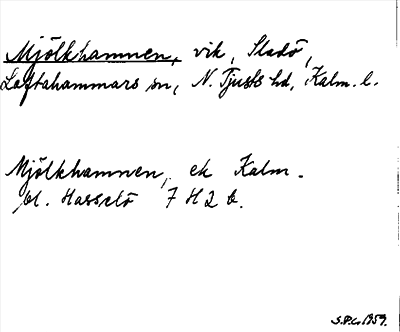 Mjölkhamnen, vik, Sladö,
Loftahammars sn, N. Tjusts hd, Kalm. l.
Mjölkhamnen, ek Kalm.
bl. Hasselö 7 H 2 b.
S.P.C. 1959.